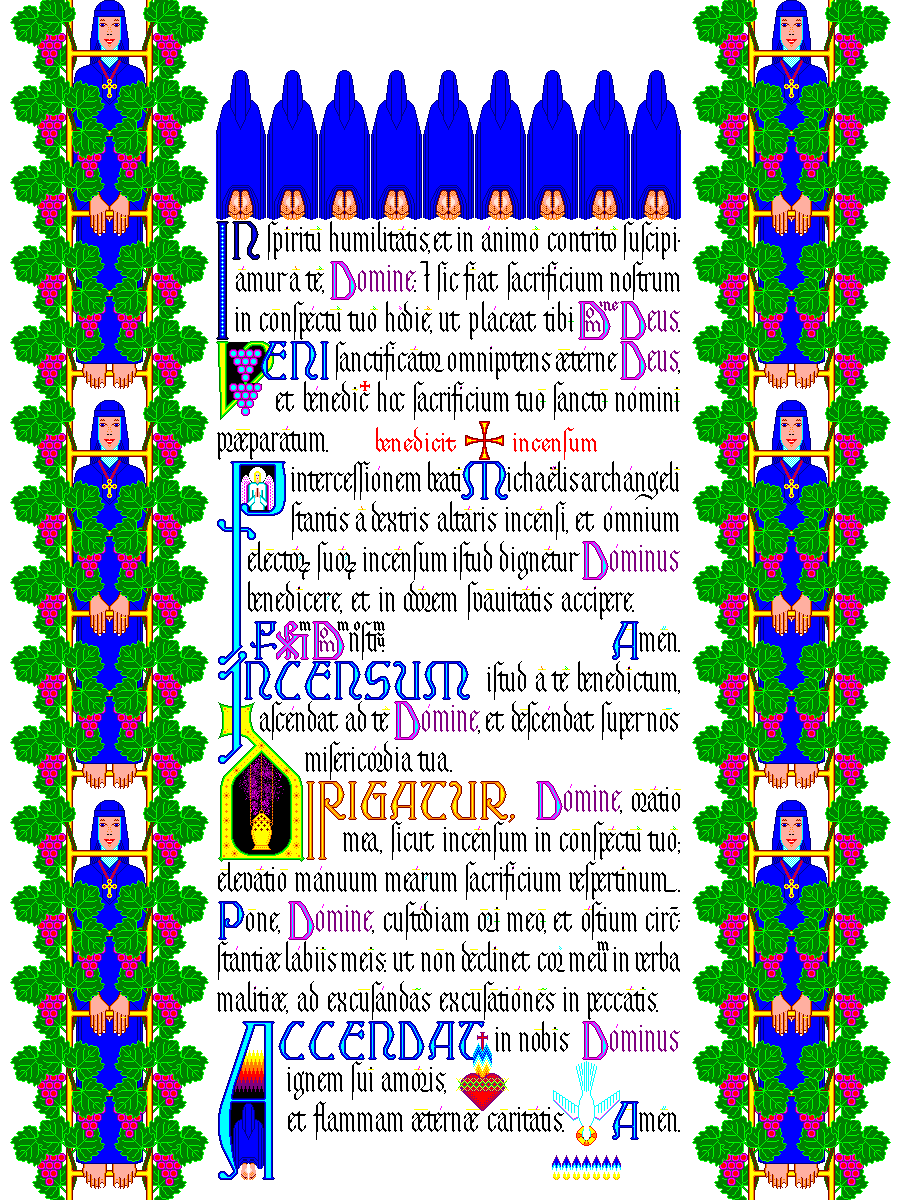 IN ſpíritu humilitátis, et in ánimo contríto ſuſcipi-
ámur a te, Dómine: ⁊ ſic fiat ſacrifícium noſtrum
in conſpéctu tuo hódie, ut pláceat tibi Dómne Deus.
VENI ſanctificátor omnípotens ætérne Deus,
et bénedic̄ ✝ hoc ſacrifícium tuo ſancto nómini
præparátum. benedicit ✠ incenſum
Per interceſſiónem beati Michaélis archángeli
ſtantis a dextris altáris incénſi, et ómnium
electórꝝ ſuórꝝ incénſum iſtud dignétur Dóminus
benedícere, et in odórem ſuavitátis accípere.
P XPm Dom noſtrm Amen.
INCENSUM iſtud a te benedíctum,
aſcéndat ad te Dómine, et deſcéndat ſuper nos
miſericórdia tua.
DIRIGATUR, Dómine, orátio
mea, ſicut incénſum in conſpéctu tuo;
elevátio mánuum meárum ſacrifícium veſpertínum.
Pone, Dómine, cuſtódiam ori meo, et óſtium circ̄
ſtántiæ lábiis meis: ut non declínet cor meūm in verba
malítiæ, ad excuſándas excuſatiónes in peccátis.
ACCENDAT in nobis Dóminus
ignem ſui amóris,
et flammam ætérnæ caritátis. Amen.